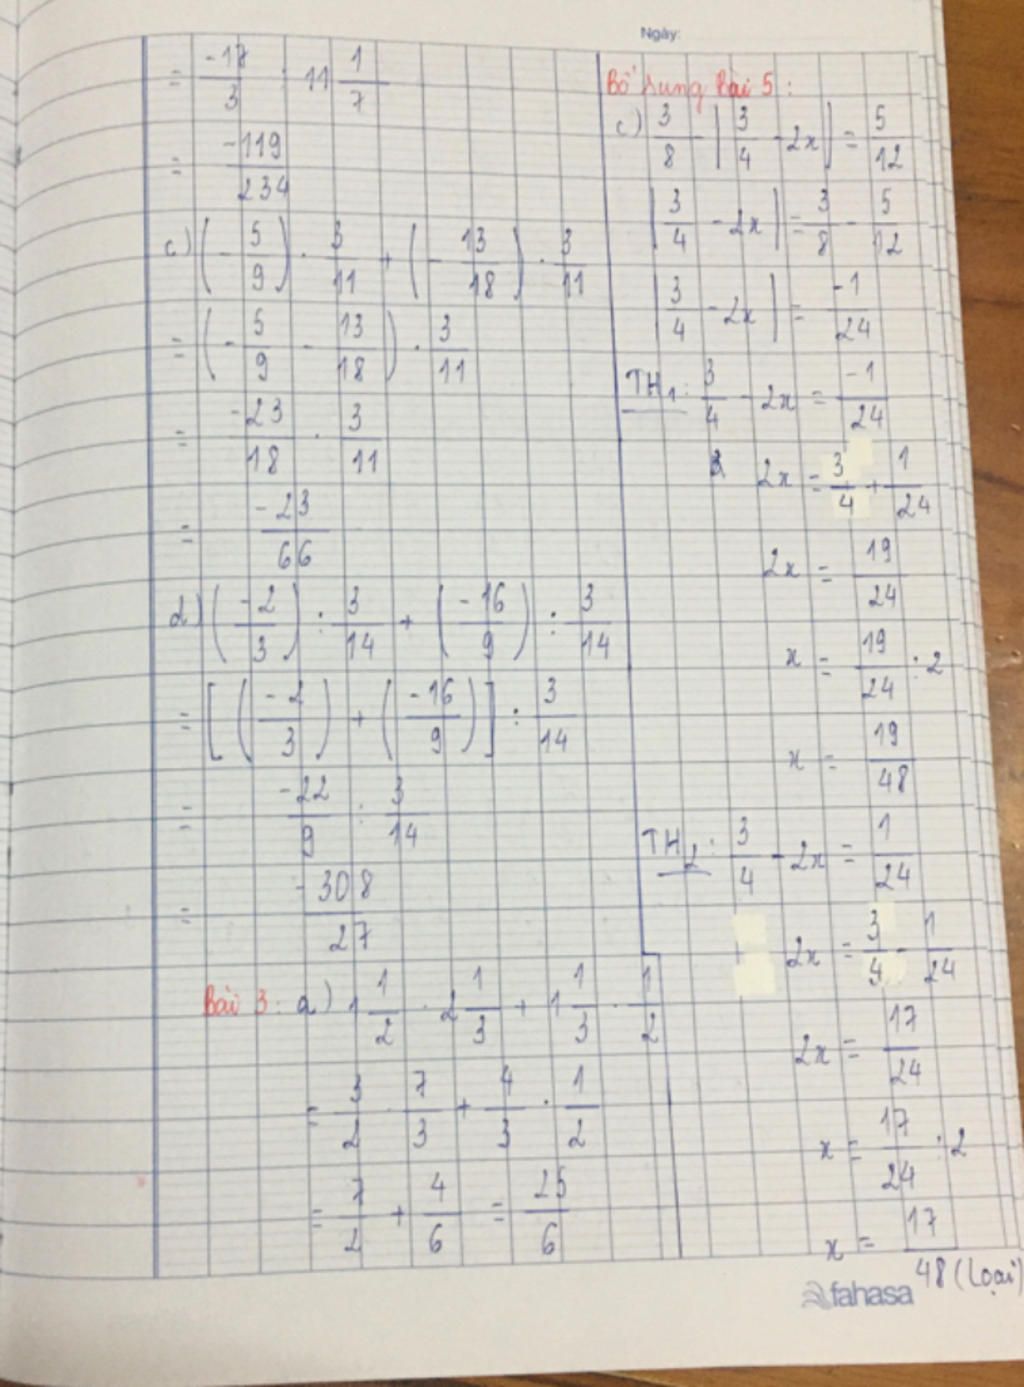 Ngày:
= -17/3 · 11 1/7
= -119/234
c) (-5/9) · 3/11 + (-13/18) · 3/11
= (-5/9 - 13/18) · 3/11
= -23/18 · 3/11
= -23/66
d) (-2/3) : 3/14 + (-16/9) : 3/14
= [(-2/3) + (-16/9)] : 3/14
= -22/9 : 3/14
= -308/27
Bài 3: a) 1 1/2 · 2 1/3 + 1 1/3 · 1/2
= 3/2 · 7/3 + 4/3 · 1/2
= 7/2 + 4/6 = 25/6
Bổ sung Bài 5:
c) 3/8 - |3/4 - 2x| = 5/12
|3/4 - 2x| = 3/8 - 5/12
|3/4 - 2x| = -1/24
TH1: 3/4 - 2x = -1/24
2x = 3/4 + 1/24
2x = 19/24
x = 19/24 : 2
x = 19/48
TH2: 3/4 - 2x = 1/24
2x = 3/4 - 1/24
2x = 17/24
x = 17/24 : 2
x = 17/48 (Loại)
fahasa